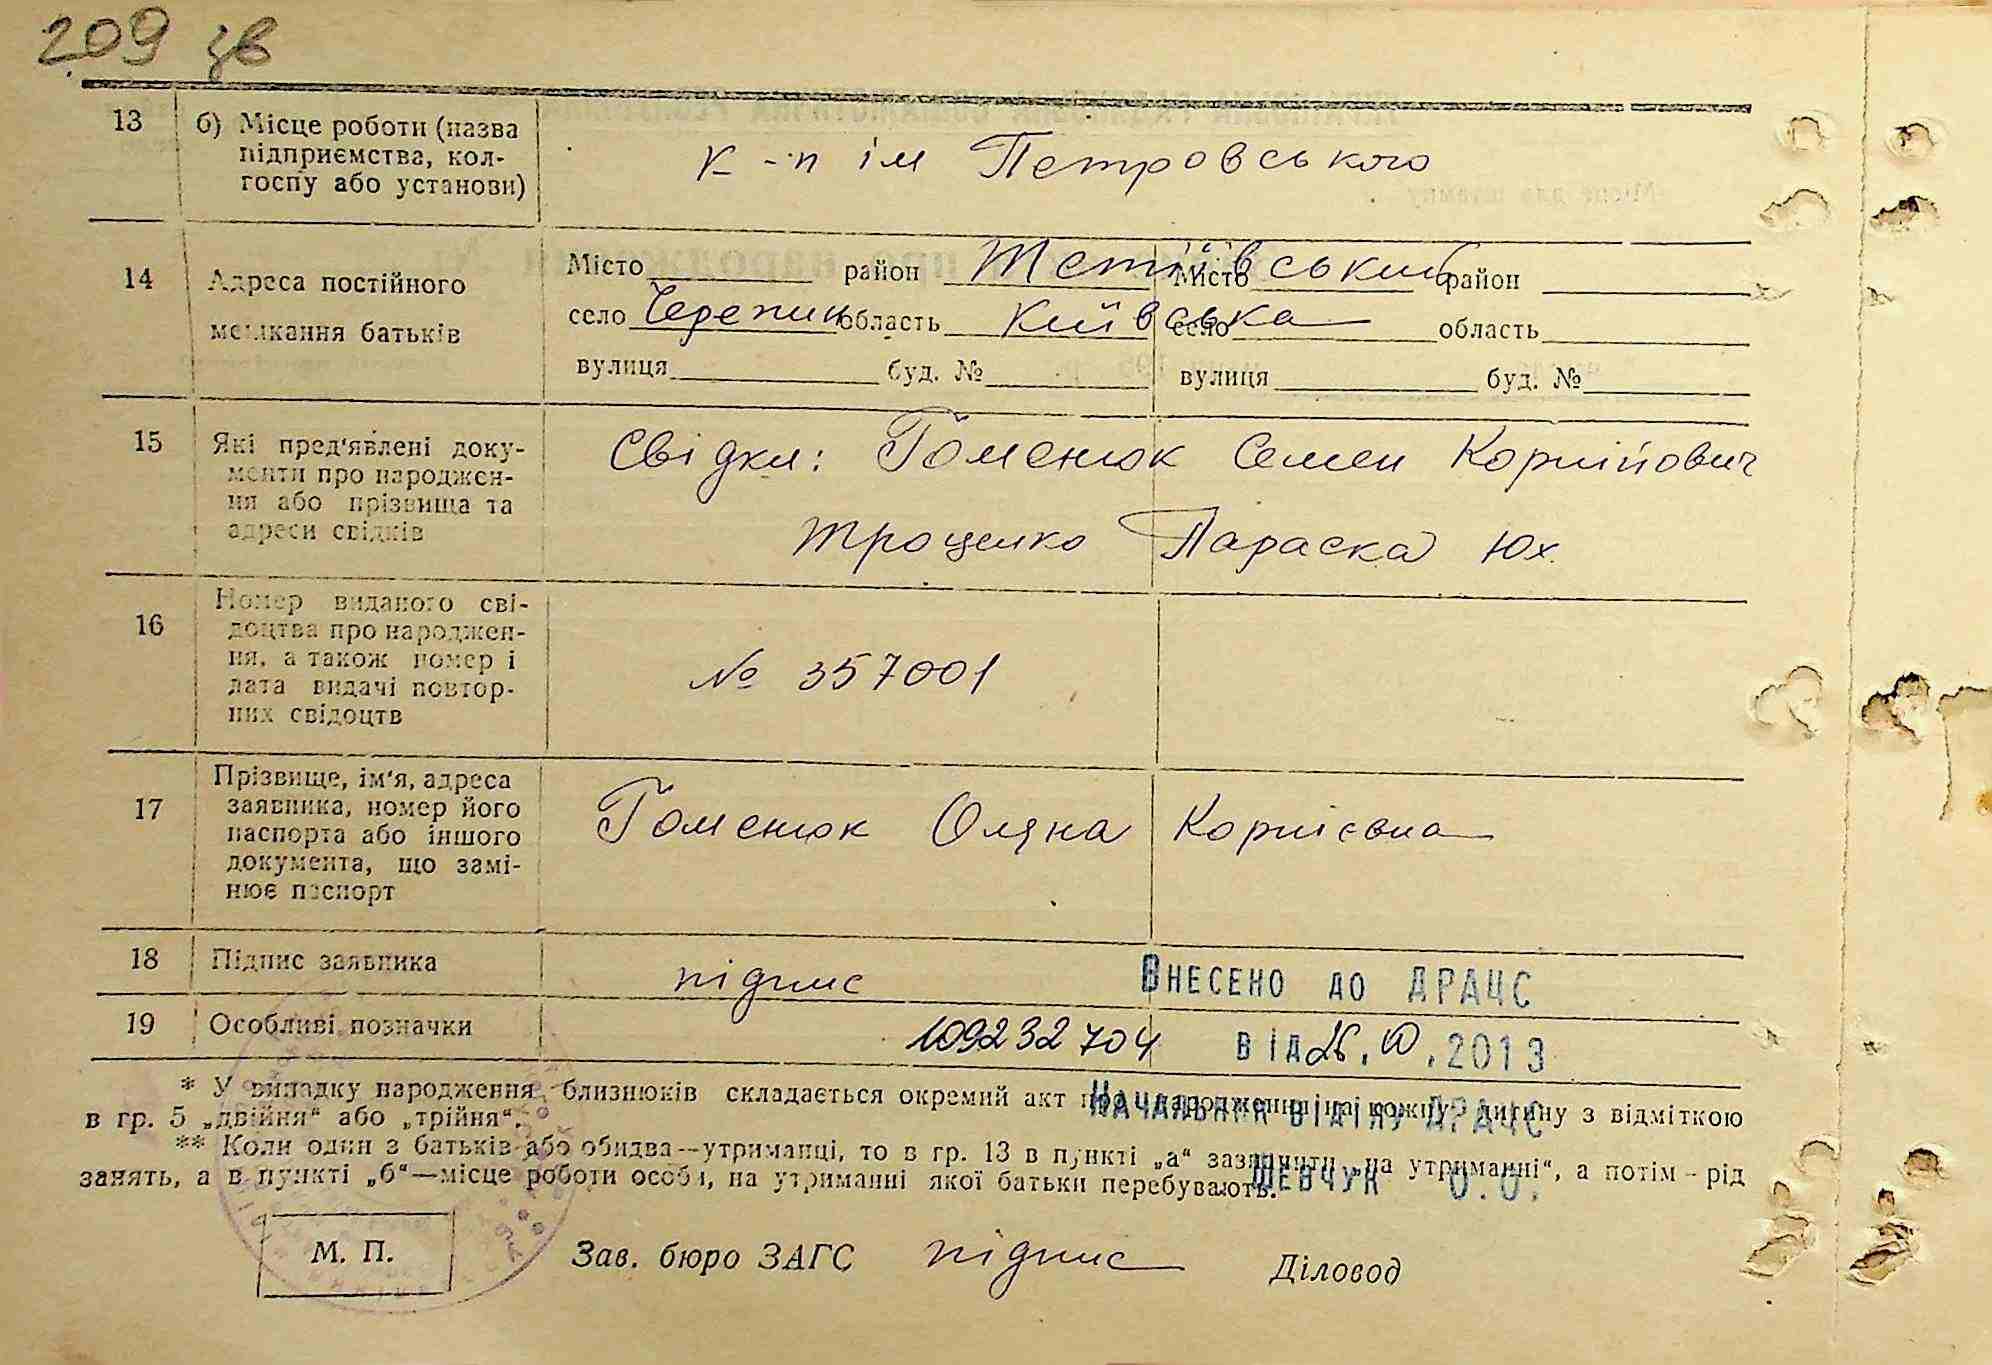 209 зв
13 б) Місце роботи (назва
підприємства, кол-
госпу або установи)
к-п ім Петровського
14 Адреса постійного
мешкання батьків
Місто район Тетіївський Місто район
село Черепин область Київська село область
вулиця буд. № вулиця буд. №
15 Які пред'явлені доку-
менти про народжен-
ня або прізвища та
адреси свідків
Свідки: Гоменюк Семен Корнійович
Троценко Параска Юх.
16 Номер виданого сві-
доцтва про народжен-
ня, а також номер і
дата видачі повтор-
них свідоцтв
№ 357001
17 Прізвище, ім'я, адреса
заявника, номер його
паспорта або іншого
документа, що замі-
нює паспорт
Гоменюк Оляна Корнієвна
18 Підпис заявника
підпис
Внесено до ДРАЦС
19 Особливі позначки
109232704 від 26. .2013
* У випадку народження близнюків складається окремий акт про народження на кожну дитину з відміткою
в гр. 5 „двійня“ або „трійня“.
Начальник відділу ДРАЦС
** Коли один з батьків або обидва—утриманці, то в гр. 13 в пункті „а“ зазначити „на утриманні“, а потім – рід
занять, а в пункті „б“—місце роботи особи, на утриманні якої батьки перебувають.
Шевчук О.О.
М. П. Зав. бюро ЗАГС підпис Діловод